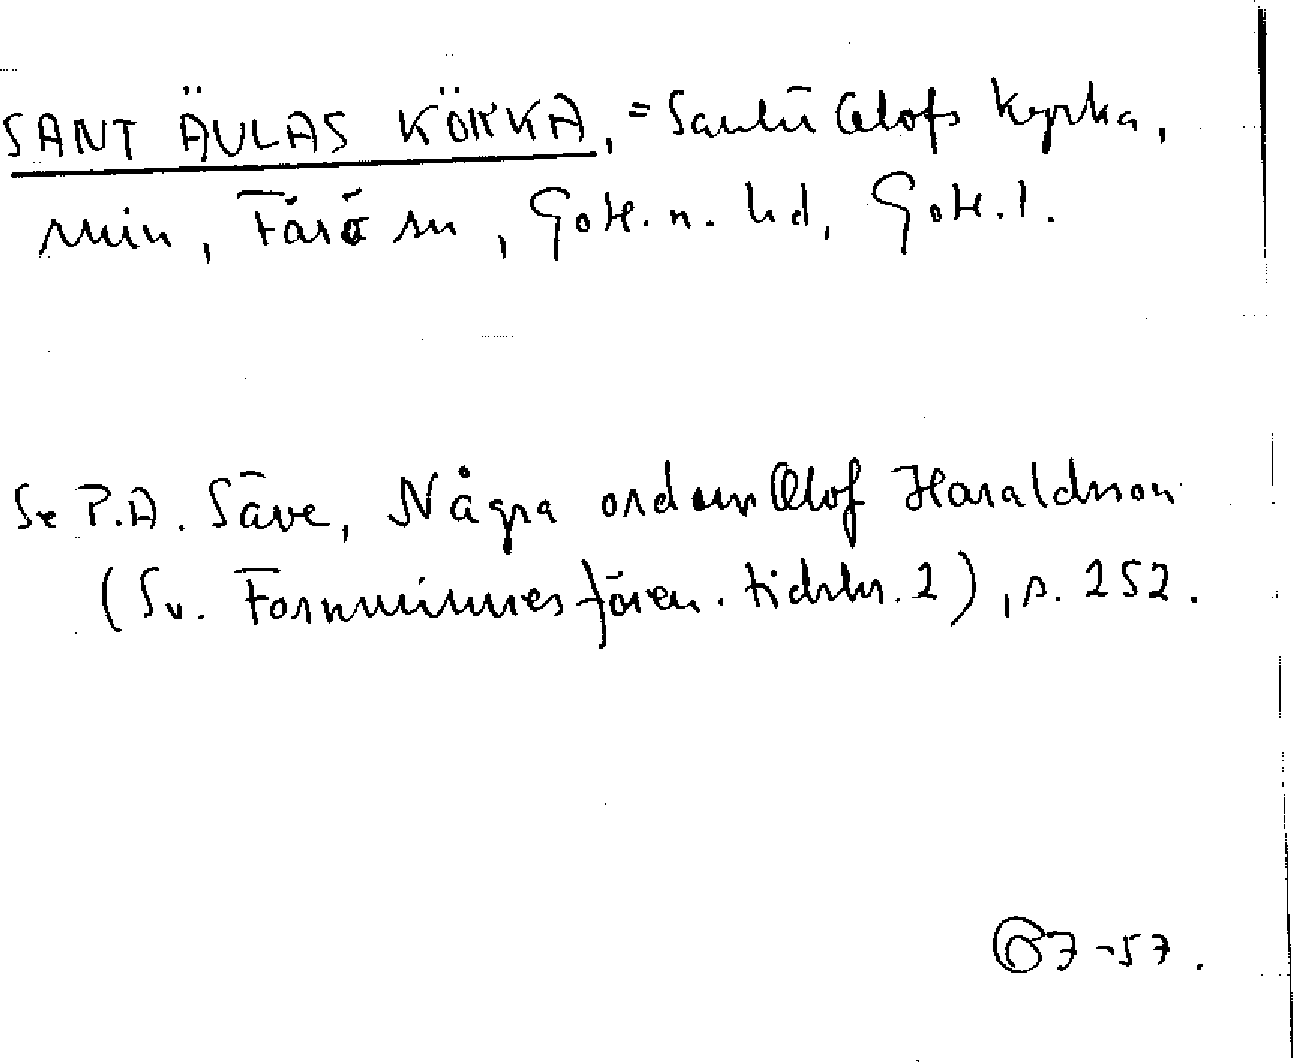 SANT ÄULAS KÖRKA, = Sankti Olofs kyrka,
ruin, Fårö sn, Gotl. n. hd, Gotl. l.
Se P.A. Säve, Några ord om Olof Haraldsson
(Sv. Fornminnesfören. tidskr. 2), s. 252.
67-57.